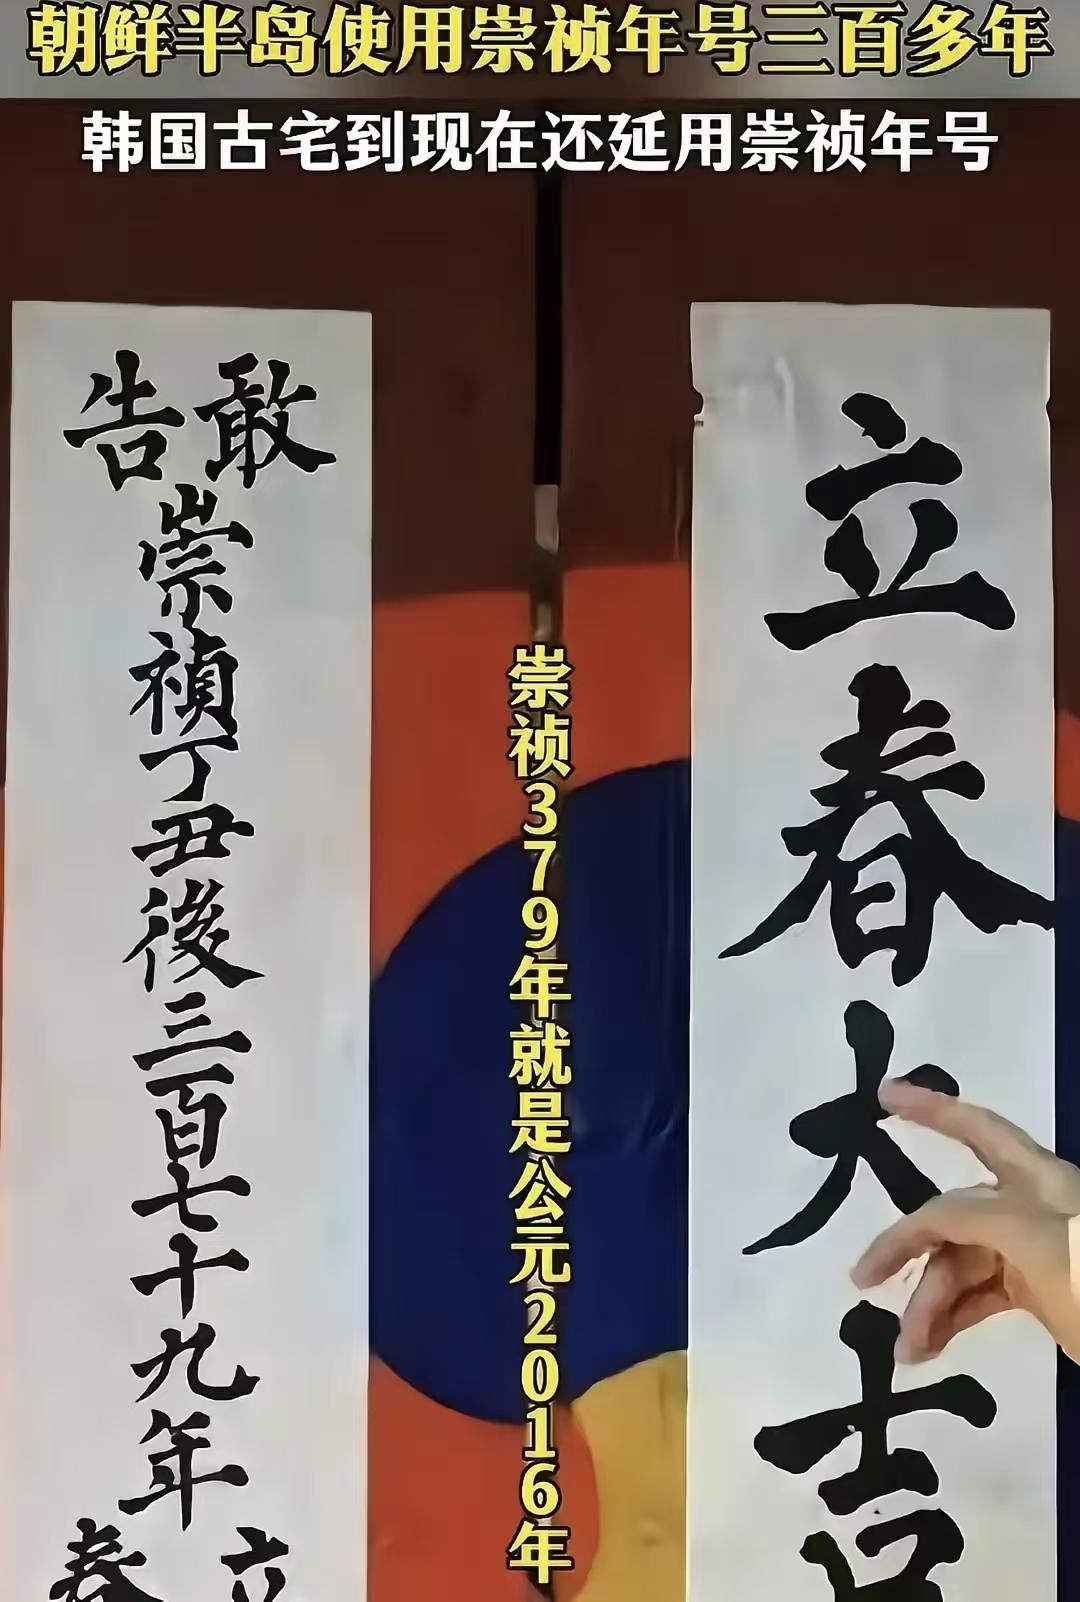 朝鲜半岛使用崇祯年号三百多年
韩国古宅到现在还延用崇祯年号
立春大吉
崇祯379年就是公元2016年
敢告
崇禎丁丑後三百七十九年
立春